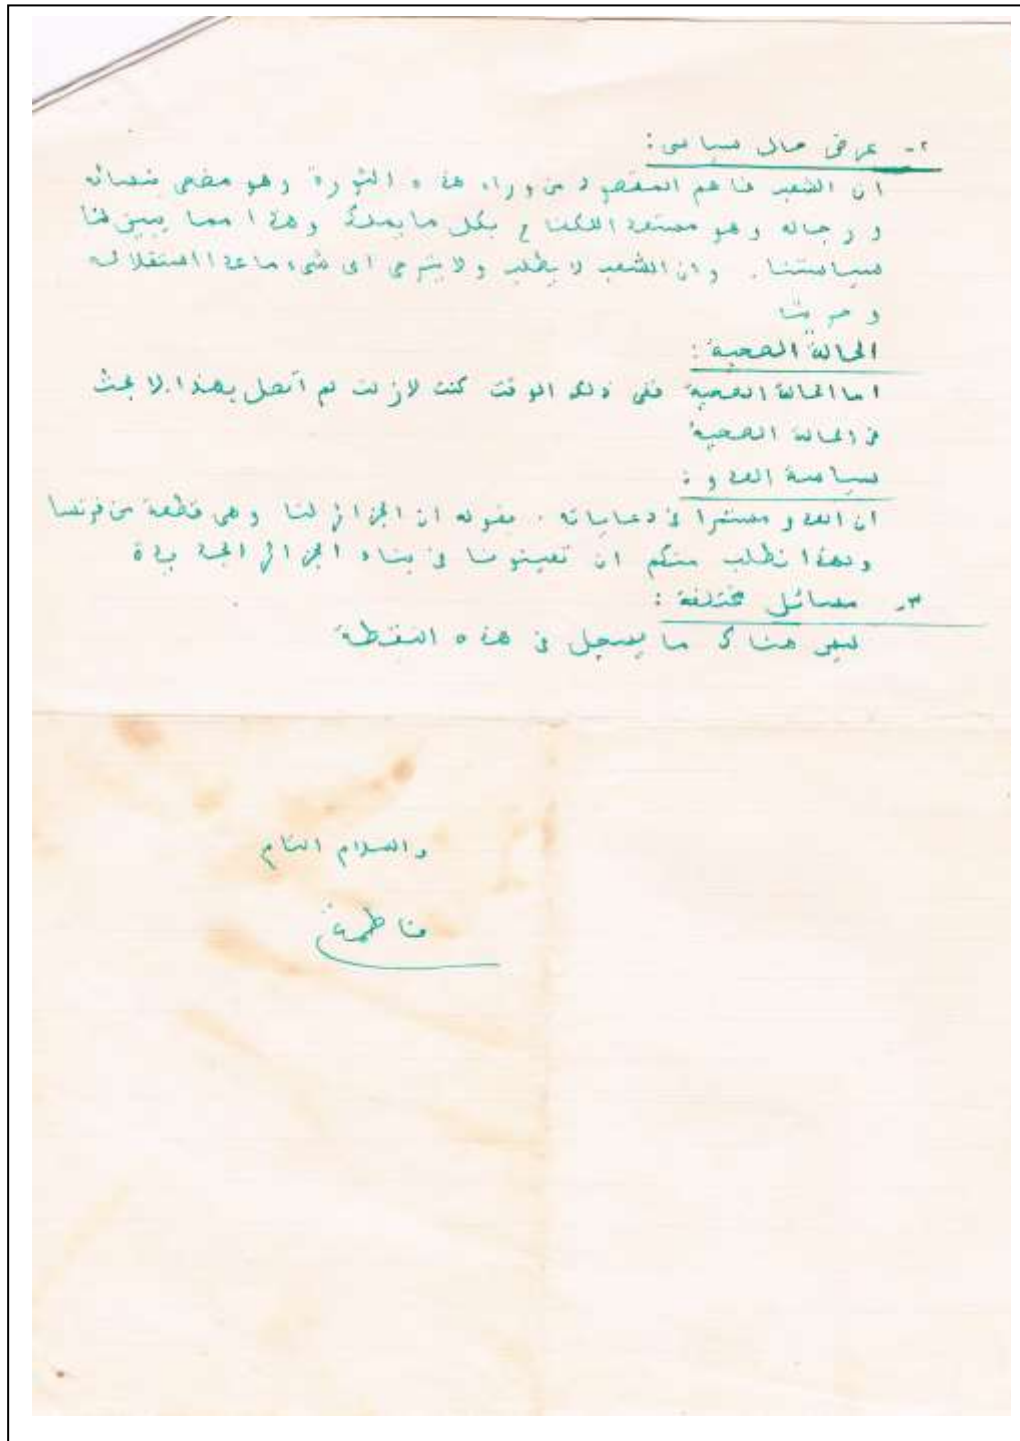 ٢- عرض حال سياسى:
ان الشعب فاهم المقصود من وراء هذه الثورة وهو مضحى بنسائه
ورجاله وهو مستعد للكفاح بكل ما يملك وهذا مما يبين لنا
سياستنا. وان الشعب لا يطلب ولا يترجى اى شىء ماعدا استقلاله
وحريته
الحالة الصحية:
اما الحالة الصحية ففى ذلك الوقت كنت لازلت لم أتصل بهذا. لا بحث
فى الحالة الصحية
سياسة العدو:
ان العدو مستمرا فى دعاياته. بقوله ان الجزائر لنا وهى قطعة من فرنسا
ولهذا نطلب منكم ان تعينونا فى بناء الجزائر الجديدة
٣- مسائل مختلفة:
ليس هناك ما يسجل فى هذه النقطة
والسلام التام
فاطمة